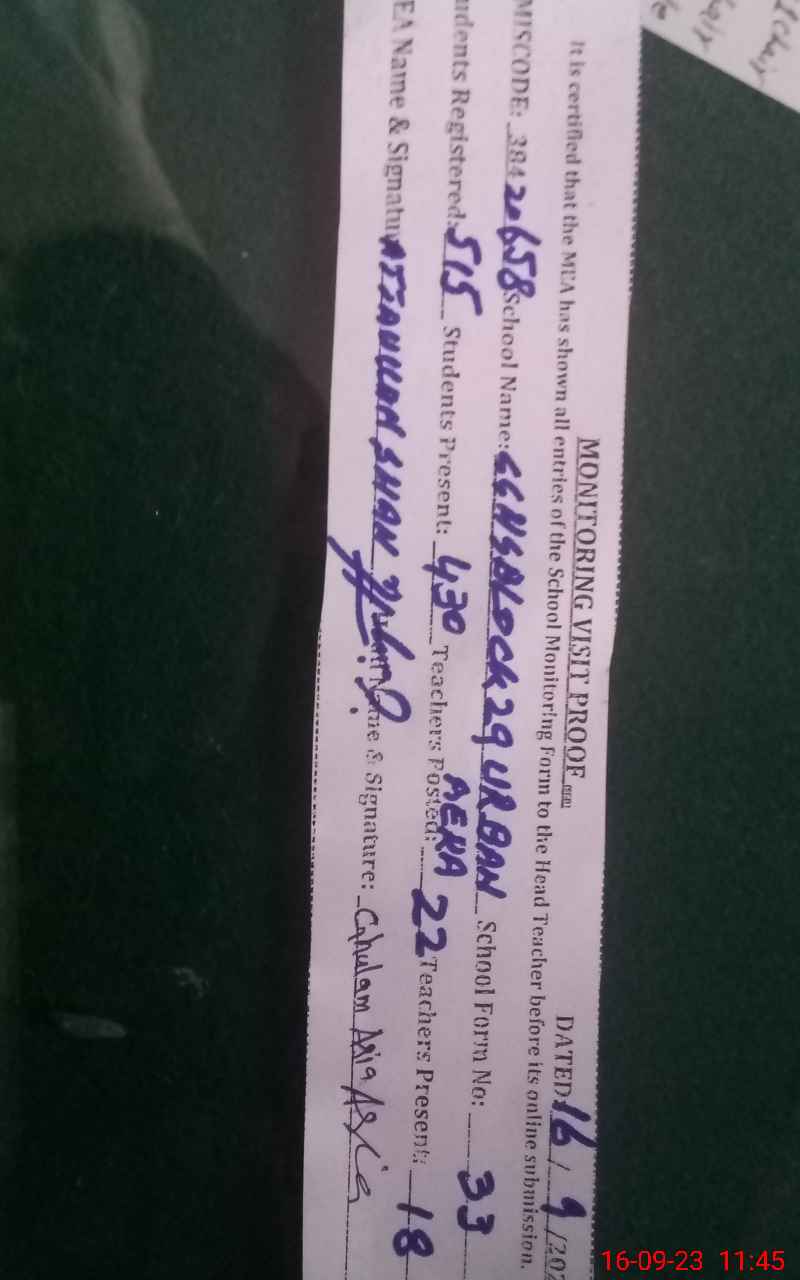 MONITORING VISIT PROOF
DATED: 16 / 9 /202
It is certified that the MEA has shown all entries of the School Monitoring Form to the Head Teacher before its online submission.
MISCODE: 38420658 School Name: GGHS BLOCK 29 URBAN AREA School Form No: 33
udents Registered: 515 Students Present: 430 Teachers Posted: 22 Teachers Present: 18
EA Name & Signatu ATTAULLAH SHAH me & Signature: Ghulam Asia Asia
16-09-23 11:45